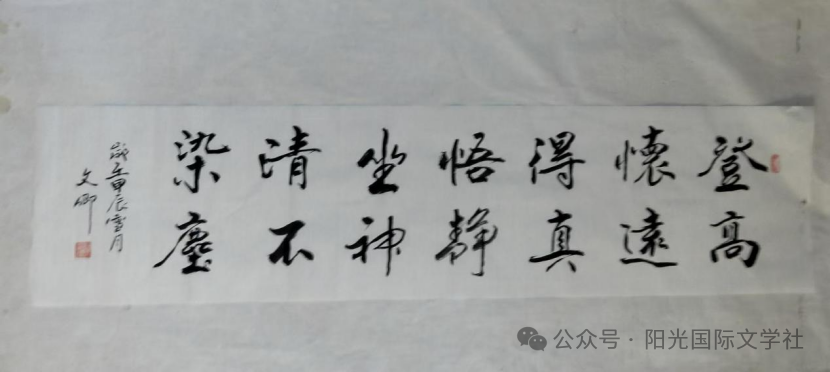 登高
懷遠
得真
悟静
坐神
清不
染塵
歲在甲辰雪月
文卿
公众号·阳光国际文学社